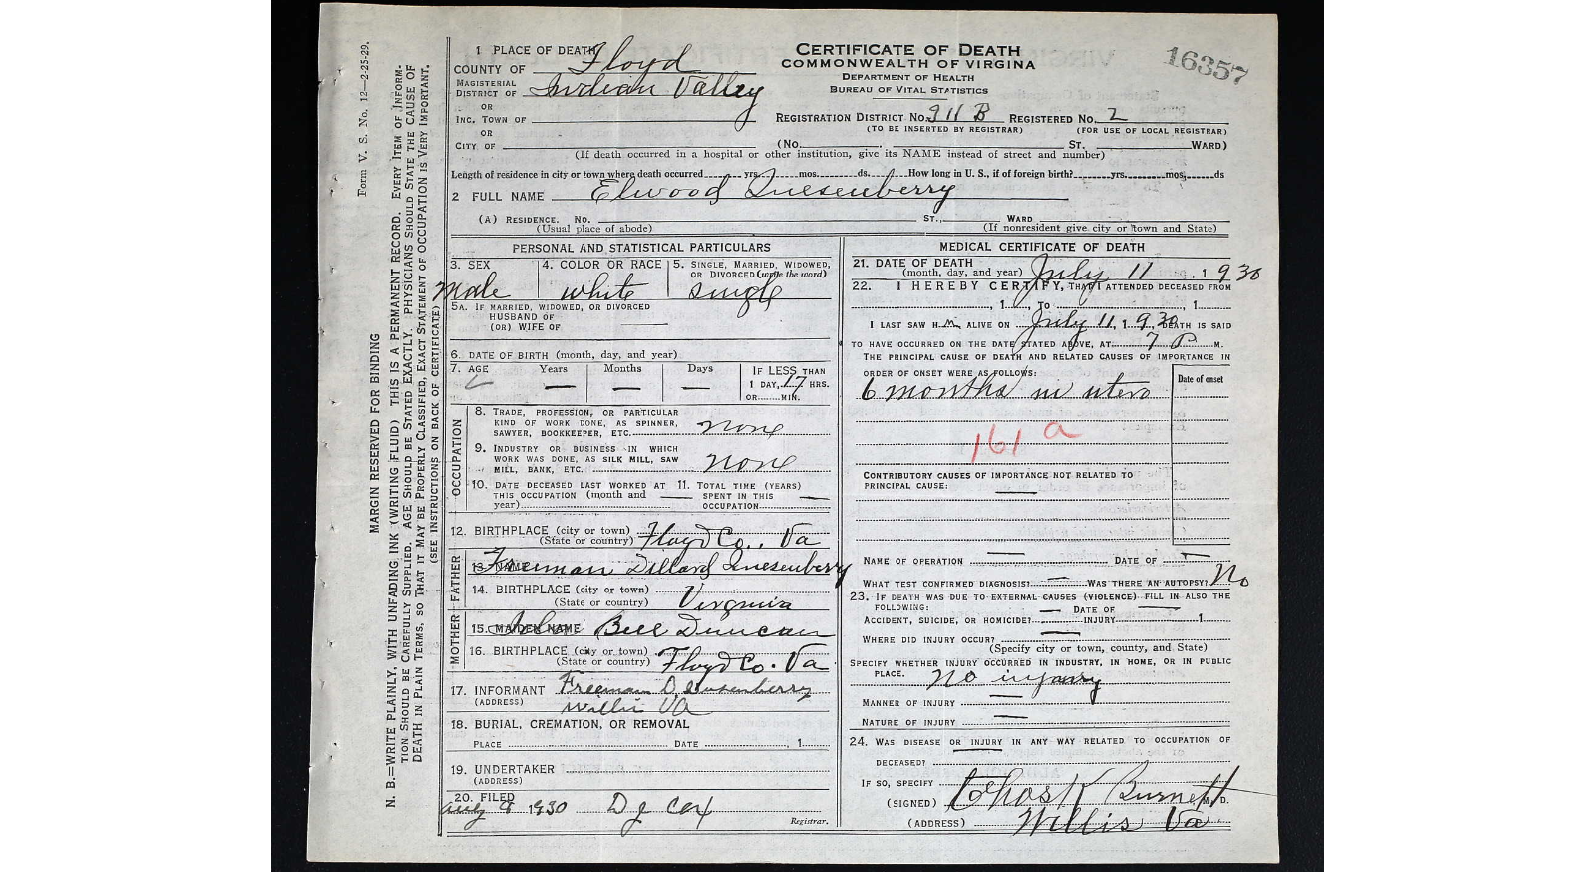 16357
CERTIFICATE OF DEATH
COMMONWEALTH OF VIRGINIA
DEPARTMENT OF HEALTH
BUREAU OF VITAL STATISTICS
1 PLACE OF DEATH
COUNTY OF Floyd
MAGISTERIAL DISTRICT OF Indian Valley
OR
INC. TOWN OF
OR
CITY OF
REGISTRATION DISTRICT No. 311 B REGISTERED No. 2
(TO BE INSERTED BY REGISTRAR) (FOR USE OF LOCAL REGISTRAR)
(No. ST. WARD)
(If death occurred in a hospital or other institution, give its NAME instead of street and number)
Length of residence in city or town where death occurred yrs. mos. ds. How long in U. S., if of foreign birth? yrs. mos. ds
2 FULL NAME Elwood Quesenberry
(A) RESIDENCE. No. ST., WARD
(Usual place of abode) (If nonresident give city or town and State)
PERSONAL AND STATISTICAL PARTICULARS
3. SEX 4. COLOR OR RACE 5. SINGLE, MARRIED, WIDOWED,
OR DIVORCED (write the word)
male white single
5A. IF MARRIED, WIDOWED, OR DIVORCED
HUSBAND OF
(OR) WIFE OF
6. DATE OF BIRTH (month, day, and year)
7. AGE Years Months Days IF LESS THAN
1 DAY, 17 HRS.
OR MIN.
OCCUPATION
8. TRADE, PROFESSION, OR PARTICULAR
KIND OF WORK DONE, AS SPINNER,
SAWYER, BOOKKEEPER, ETC. none
9. INDUSTRY OR BUSINESS IN WHICH
WORK WAS DONE, AS SILK MILL, SAW
MILL, BANK, ETC. none
10. DATE DECEASED LAST WORKED AT 11. TOTAL TIME (YEARS)
THIS OCCUPATION (month and SPENT IN THIS
year) OCCUPATION
12. BIRTHPLACE (city or town)
(State or country) Floyd Co., Va
FATHER
13. NAME Freeman Dillard Quesenberry
14. BIRTHPLACE (city or town)
(State or country) Virginia
MOTHER
15. MAIDEN NAME Bell Duncan
16. BIRTHPLACE (city or town)
(State or country) Floyd Co. Va
17. INFORMANT Freeman D. Quesenberry
(ADDRESS) Willis Va
18. BURIAL, CREMATION, OR REMOVAL
PLACE DATE , 1
19. UNDERTAKER
(ADDRESS)
20. FILED Aug 9 1930 D J Cox
Registrar.
MEDICAL CERTIFICATE OF DEATH
21. DATE OF DEATH
(month, day, and year) July 11 1930
22. I HEREBY CERTIFY, THAT I ATTENDED DECEASED FROM
, 1 , TO , 1
I LAST SAW H im ALIVE ON July 11, 1930, DEATH IS SAID
TO HAVE OCCURRED ON THE DATE STATED ABOVE, AT 7 P M.
THE PRINCIPAL CAUSE OF DEATH AND RELATED CAUSES OF IMPORTANCE IN
ORDER OF ONSET WERE AS FOLLOWS: Date of onset
6 months in utero
161 a
CONTRIBUTORY CAUSES OF IMPORTANCE NOT RELATED TO
PRINCIPAL CAUSE:
NAME OF OPERATION DATE OF
WHAT TEST CONFIRMED DIAGNOSIS? WAS THERE AN AUTOPSY? No
23. IF DEATH WAS DUE TO EXTERNAL CAUSES (VIOLENCE) FILL IN ALSO THE
FOLLOWING: DATE OF
ACCIDENT, SUICIDE, OR HOMICIDE? INJURY 1
WHERE DID INJURY OCCUR?
(Specify city or town, county, and State)
SPECIFY WHETHER INJURY OCCURRED IN INDUSTRY, IN HOME, OR IN PUBLIC
PLACE. No injury
MANNER OF INJURY
NATURE OF INJURY
24. WAS DISEASE OR INJURY IN ANY WAY RELATED TO OCCUPATION OF
DECEASED?
IF SO, SPECIFY
(SIGNED) Chas K Burnett M. D.
(ADDRESS) Willis Va
Form V. S. No. 12—2-25-29.
MARGIN RESERVED FOR BINDING
N. B.—WRITE PLAINLY, WITH UNFADING INK (WRITING FLUID) THIS IS A PERMANENT RECORD. EVERY ITEM OF INFORM-
TION SHOULD BE CAREFULLY SUPPLIED. AGE SHOULD BE STATED EXACTLY. PHYSICIANS SHOULD STATE THE CAUSE OF
DEATH IN PLAIN TERMS, SO THAT IT MAY BE PROPERLY CLASSIFIED. EXACT STATEMENT OF OCCUPATION IS VERY IMPORTANT.
(SEE INSTRUCTIONS ON BACK OF CERTIFICATE)